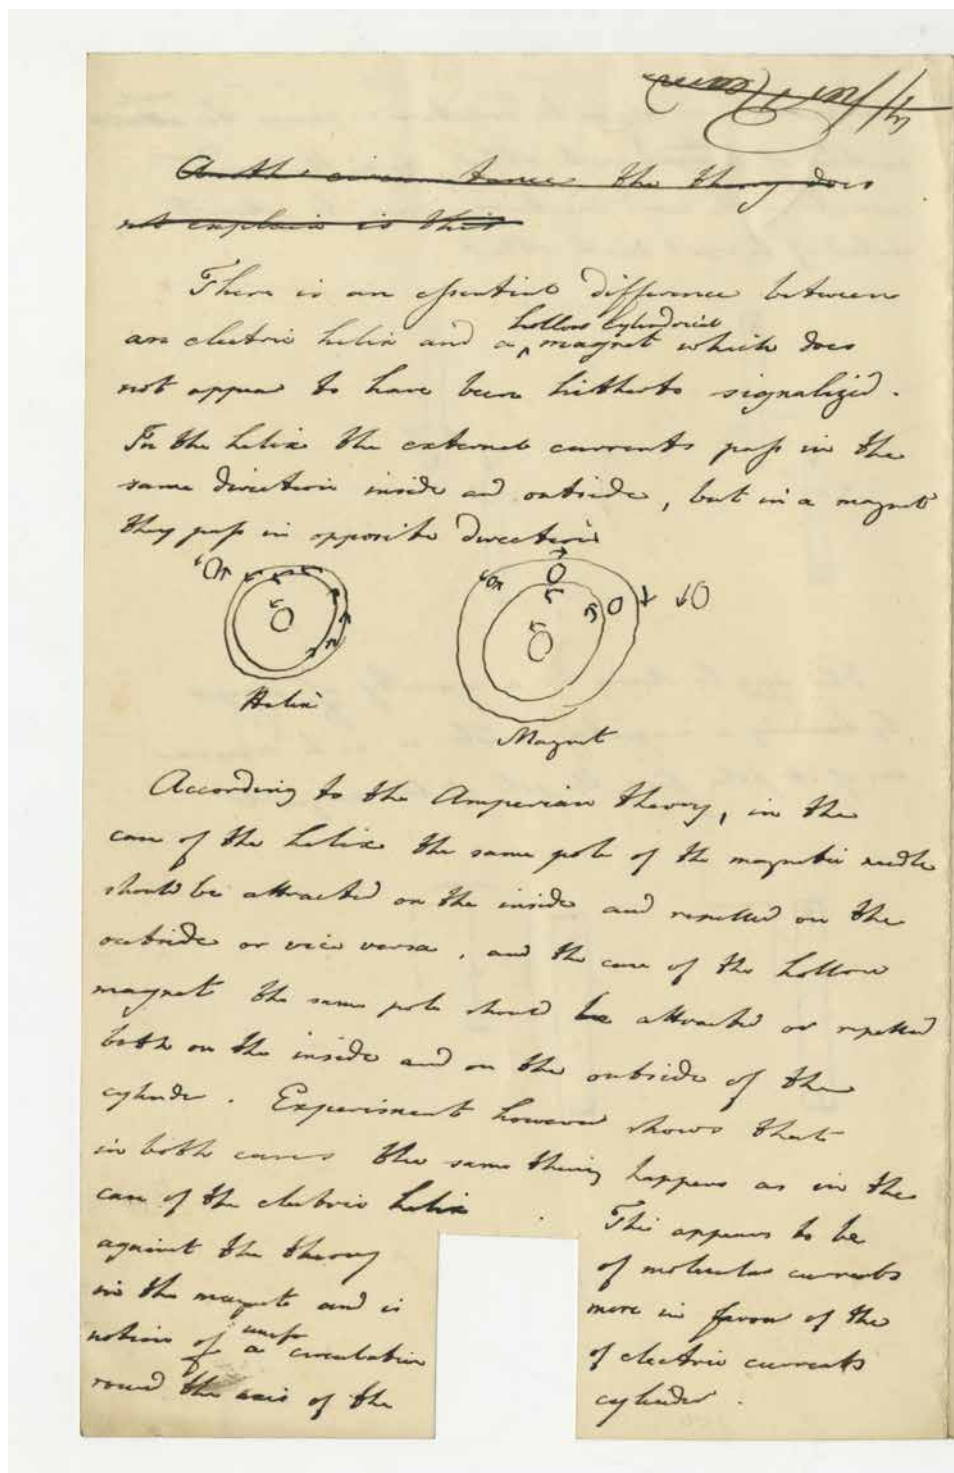 Another circumstance the theory does
not explain is this
There is an essential difference between
an electric helix and a hollow cylindrical magnet which does
not appear to have been hitherto signalized.
In the helix the external currents pass in the
same direction inside and outside, but in a magnet
they pass in opposite direction
Helix
Magnet
According to the Amperian theory, in the
case of the helix the same pole of the magnetic needle
should be attracted on the inside and repelled on the
outside or vice versa, and the case of the hollow
magnet the same pole should be attracted or repelled
both on the inside and on the outside of the
cylinder. Experiment however shows that
in both cases the same thing happens as in the
case of the electric helix. This appears to be
against the theory of molecular currents
in the magnet and is more in favor of the
notion of a circulation of electric currents
round the axis of the cylinder.